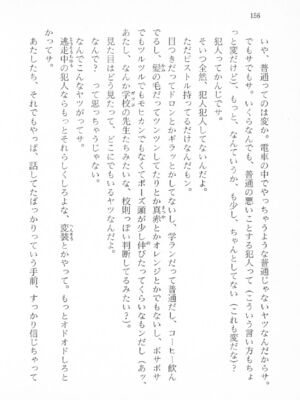 156
いや、普通ってのは変か。電車の中でやっちゃうような普通じゃないヤツなんだからサ。
でもサでもサ。いくらなんでも、普通の悪いことする犯人って(こういう言い方もちょ
っと変だけど)、もっと、なんていうか、も少し、ちゃんとしてない(これも変だな)?
犯人ってかんじでサ。
そいつ全然、犯人してないんだよ。
まだピストル持ってるくせしてサ。
目つきだってドロンとかギラッとかしてないし、学ランだって普通だし、コーヒー飲ん
だし、髪の毛だってツンツンしてたりとか真赤とかオレンジとかでもないし、ボサボサ
でもツルツルでもモヒカンでもなくてボーズ頭が少し伸びたってくらいなもンだし(あッ、
あたし、なんか学校の先生たちみたいな、校則っぽい判断してるみたい?)
見た目はどう見たって、どこにでもいるヤツなんだよ。
なんで? って思っちゃうじゃない。
なんでこんなヤツがってサ。
逃走中の犯人ならもっとそれらしくしろよな、変装とかやって。もっとオドオドしろと
あたしたち、それでもやっぱ、話してたばっかりっていう手前、すっかり信じちゃって